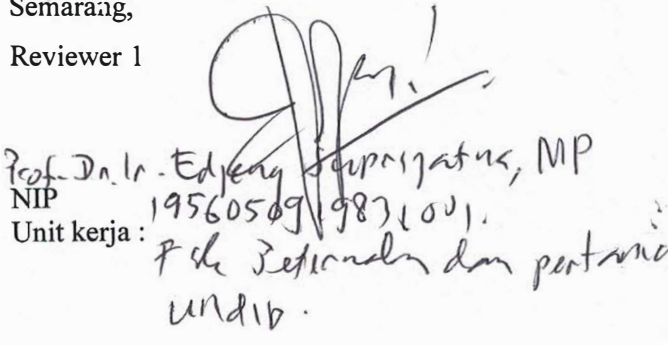 Semarang,
Reviewer 1
Prof. Dr. Ir. Edjeng Suprijatna, MP
NIP 1956050919831001.
Unit kerja : Fak Peternakan dan pertania
undip.